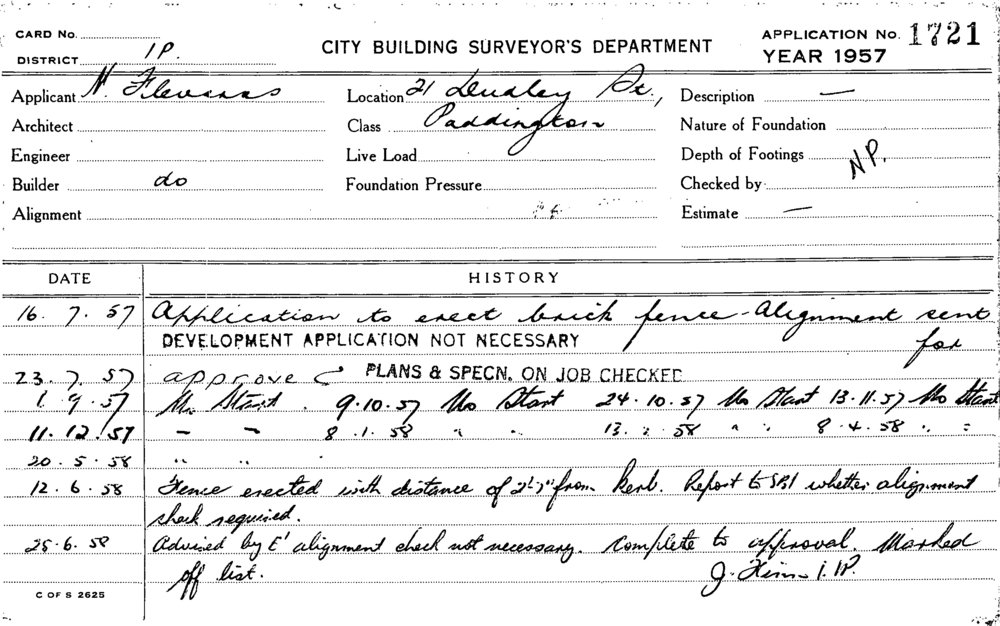 CARD No.
DISTRICT 1P.
CITY BUILDING SURVEYOR'S DEPARTMENT
APPLICATION No. 1721
YEAR 1957
Applicant N. Flevaras
Location 21 Dudley St.,
Description —
Architect
Class Paddington
Nature of Foundation
Engineer
Live Load
Depth of Footings
Builder do
Foundation Pressure
Checked by NP.
Alignment
Estimate —
DATE HISTORY
16. 7. 57 Application to erect brick fence - Alignment sent
for
DEVELOPMENT APPLICATION NOT NECESSARY
23. 7. 57 approve PLANS & SPECN. ON JOB CHECKED
1. 9. 57 No Start. 9.10.57 No Start 24.10.57 No Start 13.11.57 No Start
11. 12. 57 - - 8.1.58 " " 13. 2. 58 " " 8.4.58 " "
20. 5. 58 " "
12. 6. 58 Fence erected with distance of from kerb. Report to whether alignment
check required.
25.6.58 Advised by E' alignment check not necessary. Complete to approval. Marked
off list. J. 1.1P.
C OF S 2625